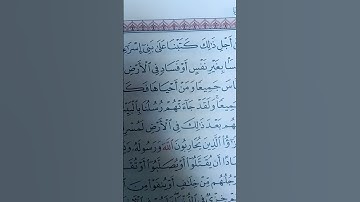 أَجْلِ ذَٰلِكَ كَتَبْنَا عَلَىٰ بَنِىٓ إِسْرَ
سًۢا بِغَيْرِ نَفْسٍ أَوْ فَسَادٍ فِى ٱلْأَرْضِ
اسَ جَمِيعًا وَمَنْ أَحْيَاهَا فَكَ
جَمِيعًا وَلَقَدْ جَآءَتْهُمْ رُسُلُنَا بِٱلْبَيِّ
هُم بَعْدَ ذَٰلِكَ فِى ٱلْأَرْضِ لَمُسْرِ
ٰٓؤُا۟ ٱلَّذِينَ يُحَارِبُونَ ٱللَّهَ وَرَسُولَهُۥ وَ
ادًا أَن يُقَتَّلُوٓا۟ أَوْ يُصَلَّبُوٓا۟ أَوْ تُقَ
جُلُهُم مِّنْ خِلَٰفٍ أَوْ يُنفَوْا۟ مِنَ